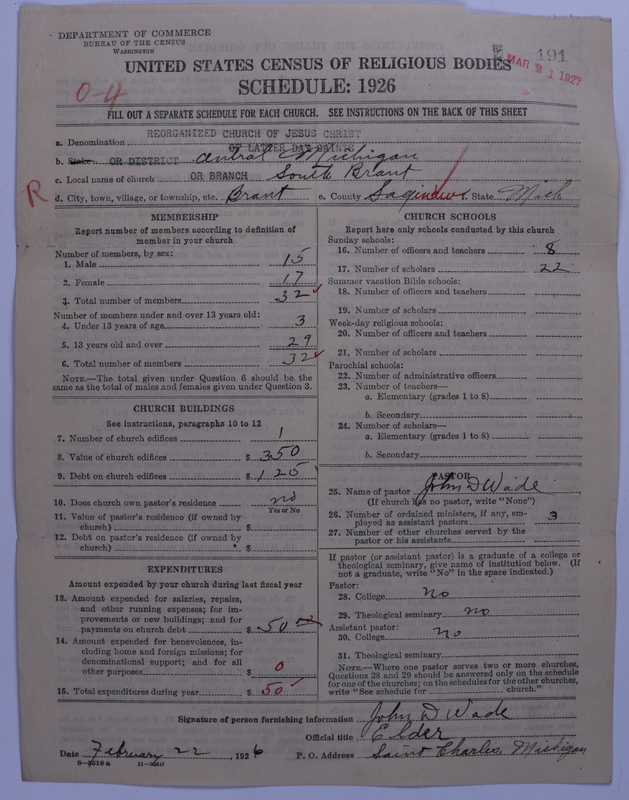 DEPARTMENT OF COMMERCE
BUREAU OF THE CENSUS
WASHINGTON
191
MAR 21 1927
UNITED STATES CENSUS OF RELIGIOUS BODIES
SCHEDULE: 1926
0-4
FILL OUT A SEPARATE SCHEDULE FOR EACH CHURCH. SEE INSTRUCTIONS ON THE BACK OF THIS SHEET
REORGANIZED CHURCH OF JESUS CHRIST
a. Denomination OF LATTER DAY SAINTS
b. State OR DISTRICT Central Michigan
c. Local name of church OR BRANCH South Brant
R
d. City, town, village, or township, etc. Brant e. County Saginaw State Mich
MEMBERSHIP
Report number of members according to definition of
member in your church
Number of members, by sex:
1. Male 15
2. Female 17
3. Total number of members 32
Number of members under and over 13 years old:
4. Under 13 years of age 3
5. 13 years old and over 29
6. Total number of members 32
NOTE.—The total given under Question 6 should be the
same as the total of males and females given under Question 3.
CHURCH BUILDINGS
See instructions, paragraphs 10 to 12
7. Number of church edifices 1
8. Value of church edifices $ 350
9. Debt on church edifices $ 125
10. Does church own pastor's residence no
Yes or No
11. Value of pastor's residence (if owned by
church) $
12. Debt on pastor's residence (if owned by
church) $
EXPENDITURES
Amount expended by your church during last fiscal year
13. Amount expended for salaries, repairs,
and other running expenses; for im-
provements or new buildings; and for
payments on church debt $ 50 00
14. Amount expended for benevolences, in-
cluding home and foreign missions; for
denominational support; and for all
other purposes $ 0
15. Total expenditures during year $ 50
CHURCH SCHOOLS
Report here only schools conducted by this church
Sunday schools:
16. Number of officers and teachers 8
17. Number of scholars 22
Summer vacation Bible schools:
18. Number of officers and teachers
19. Number of scholars
Week-day religious schools:
20. Number of officers and teachers
21. Number of scholars
Parochial schools:
22. Number of administrative officers
23. Number of teachers—
a. Elementary (grades 1 to 8)
b. Secondary
24. Number of scholars—
a. Elementary (grades 1 to 8)
b. Secondary
PASTOR
25. Name of pastor John D Wade
(If church has no pastor, write "None")
26. Number of ordained ministers, if any, em-
ployed as assistant pastors 3
27. Number of other churches served by the
pastor or his assistants
If pastor (or assistant pastor) is a graduate of a college or
theological seminary, give name of institution below. (If
not a graduate, write "No" in the space indicated.)
Pastor:
28. College no
29. Theological seminary no
Assistant pastor:
30. College no
31. Theological seminary
NOTE.—Where one pastor serves two or more churches,
Questions 28 and 29 should be answered only on the schedule
for one of the churches; on the schedules for the other churches,
write "See schedule for church."
Signature of person furnishing information John D Wade
Official title Elder
Date February 22, 1926 P. O. Address Saint Charles, Michigan